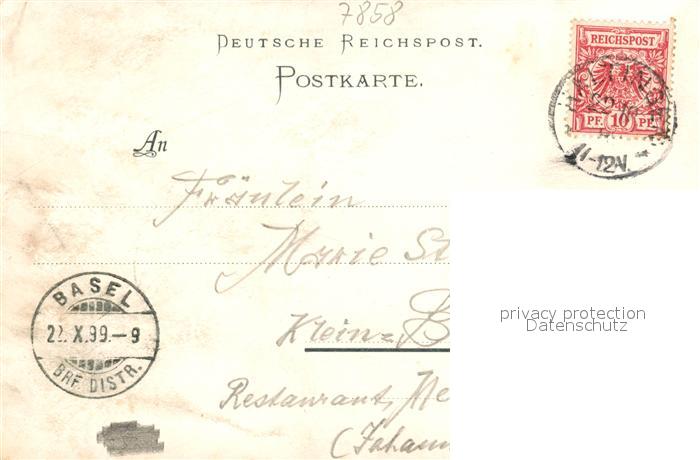 7858
DEUTSCHE REICHSPOST.
POSTKARTE.
REICHSPOST
PF. 10 PF.
11-12N.
An
Fräulein
Marie St
privacy protection
Datenschutz
BASEL
22.X.99.-9
BRF. DISTR.
Klein-B
Restaurant,
(Johann